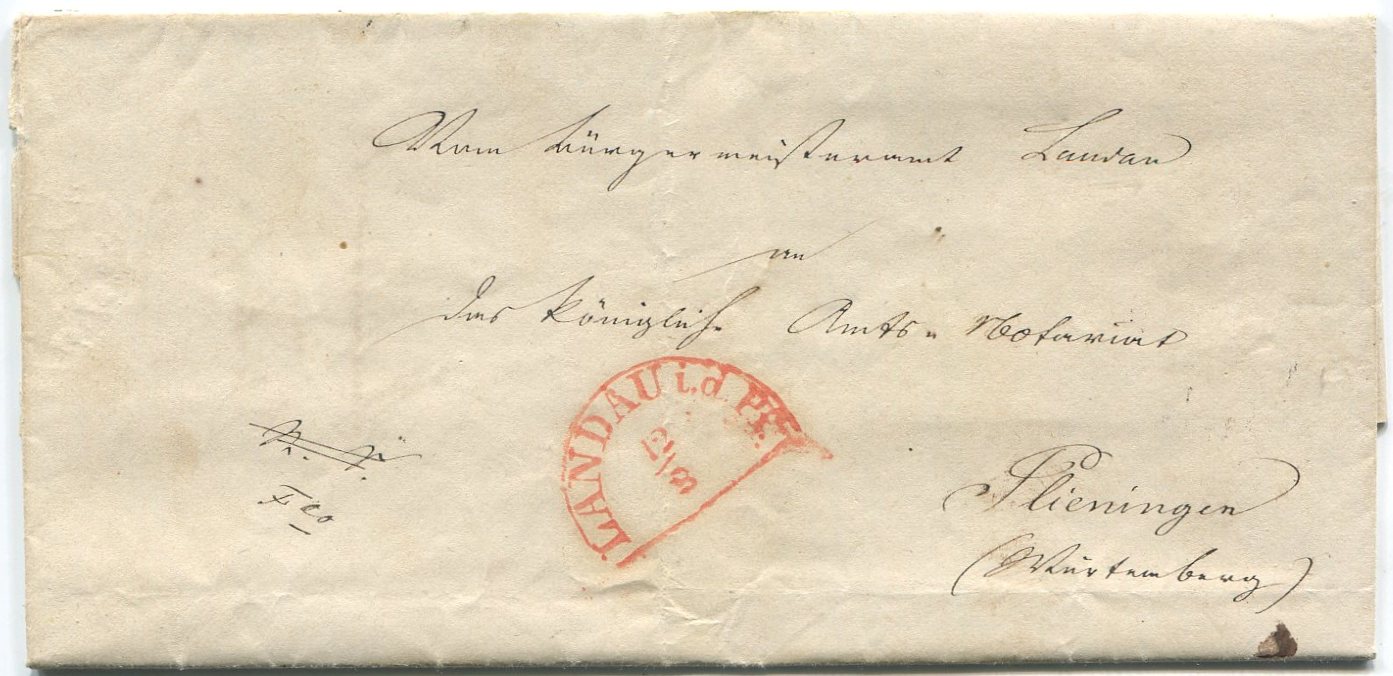 Vom Bürgermeisteramt Landau
an
das Königliche Amts- Notariat
LANDAU i.d. Pf.
12/8
Plieningen
(Würtemberg)